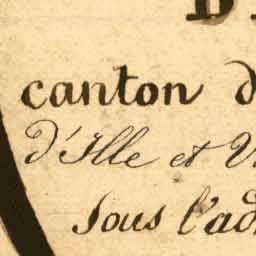 canton d
d'Ille et V
Sous l'ad